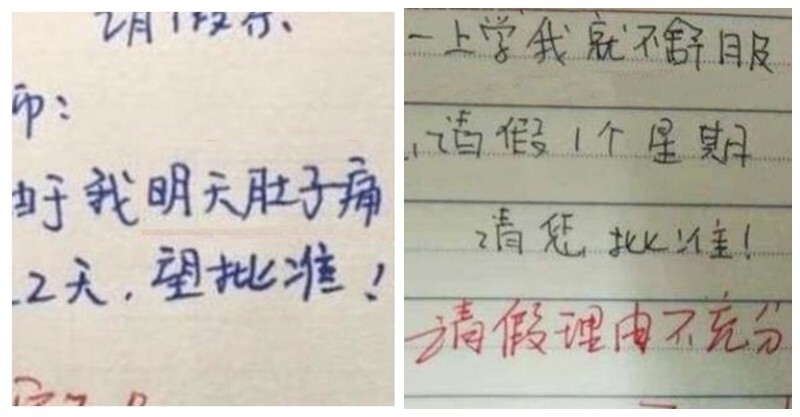 请假条、
师：
由于我明天肚子痛
2天，望批准！
一上学我就不舒服
请假1个星期
请您批准！
请假理由不充分